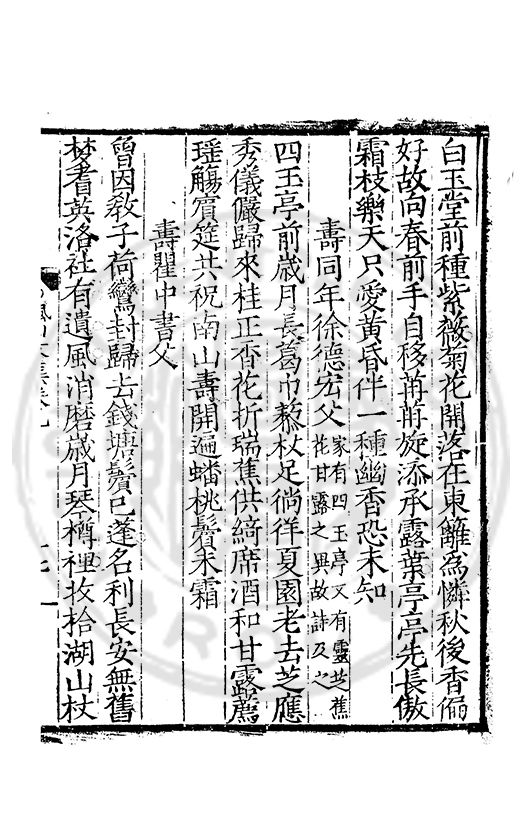 白玉堂前種紫薇菊花開落在東籬為憐秋後香偏
好故向春前手自移苒苒旋添承露葉亭亭先長傲
霜枝樂天只愛黃昏伴一種幽香恐未知
壽同年徐德宏父家有四玉亭又有靈芝蕉
花甘露之異故詩及之
四玉亭前歲月長葛巾藜杖足徜徉夏園老去芝應
秀儀儼歸來桂正香花折瑞蕉供綺席酒和甘露薦
瑶觴賓筵共祝南山壽開遍蟠桃鬢未霜
壽瞿中書父
曾因敎子荷鸞封歸去錢塘鬢已蓬名利長安無舊
梦耆英洛社有遺風消磨歲月琴樽裡收拾湖山杖